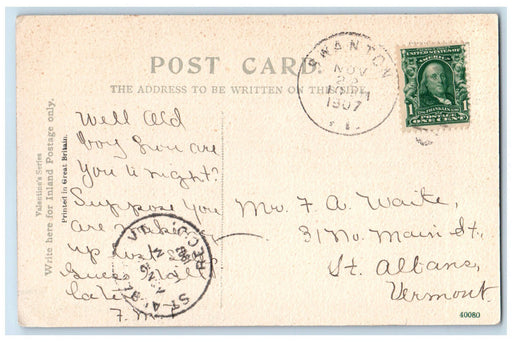 POST CARD.
THE ADDRESS TO BE WRITTEN ON THIS SIDE.
Valentine's Series
Write here for Inland Postage only.
Printed in Great Britain.
SWANTON
NOV
1907
UNITED STATES OF
AMERICA
FRANKLIN
1 1
POSTAGE
ONE CENT
Well Old
boy how are
you to night?
Suppose you
are making
up
Guess
later
F. M.
REC'D
ST. AL
VT.
Mr. F. A. Waite,
31 No. Main St.,
St. Albans,
Vermont.
40080